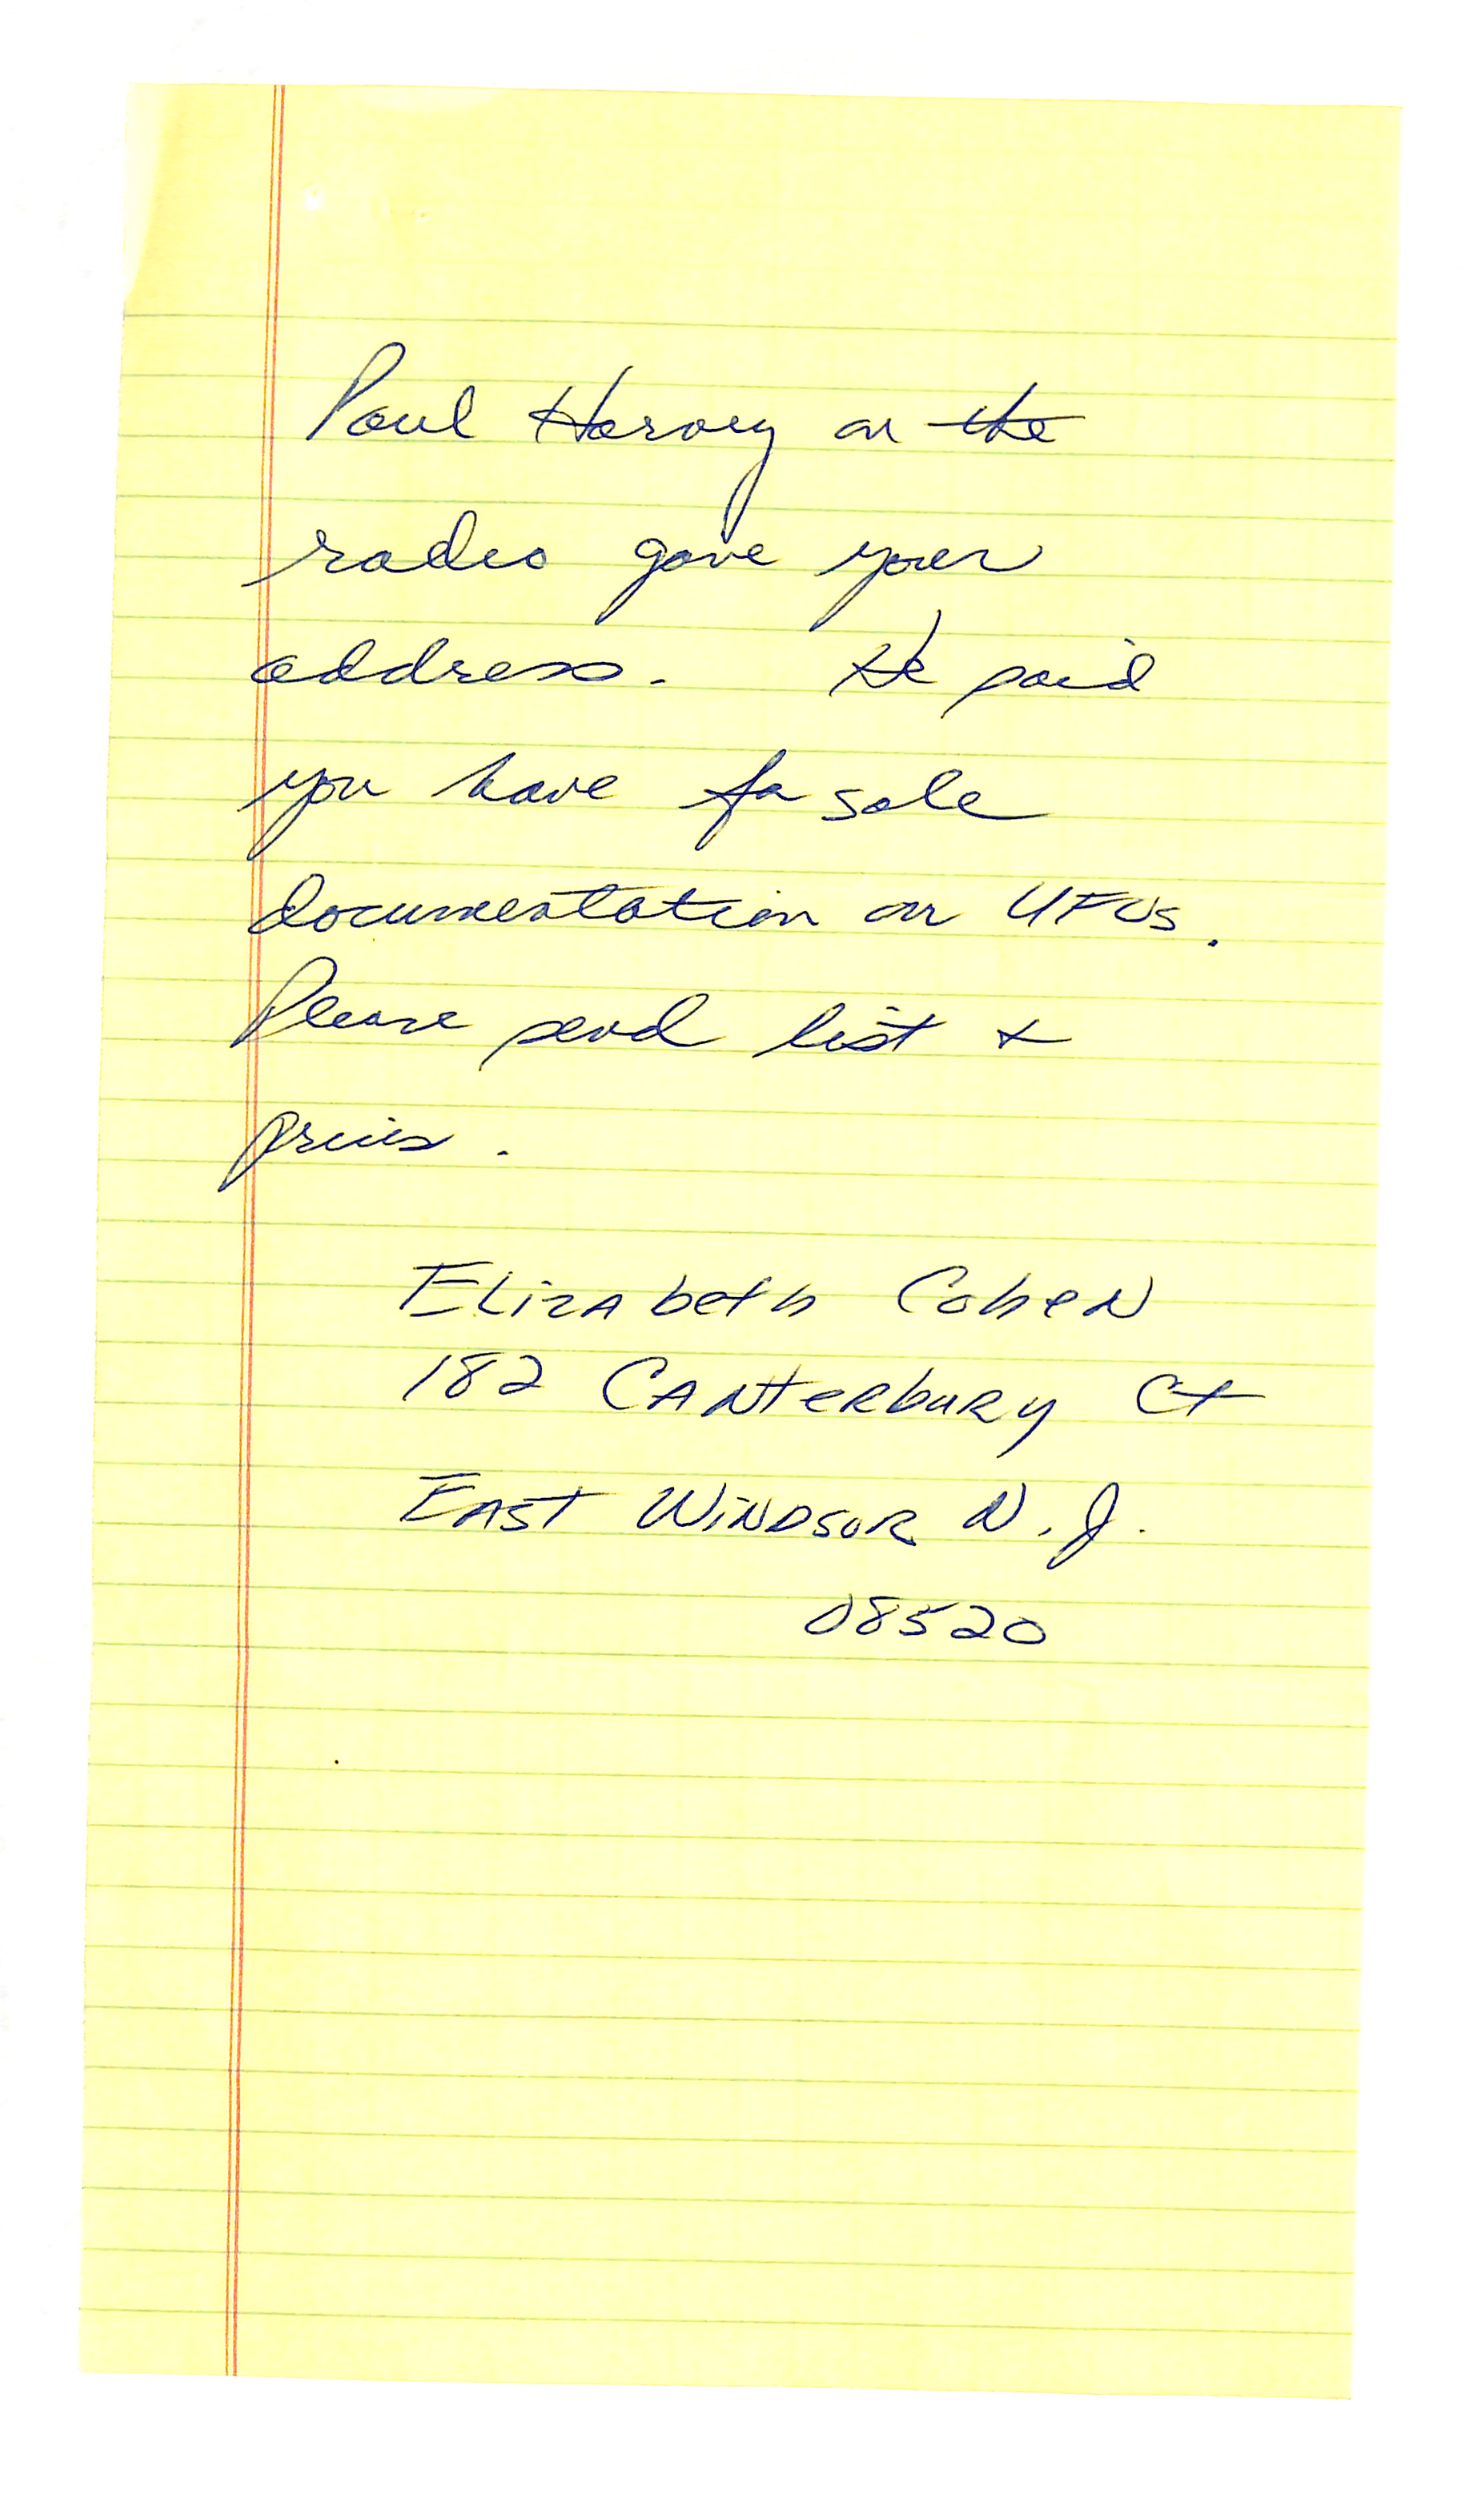 Paul Harvey on the
radio gave your
address. He said
you have for sale
documentation on UFOs.
Please send list +
prices.
Elizabeth Cohen
182 Canterbury Ct
East Windsor N.J.
08520